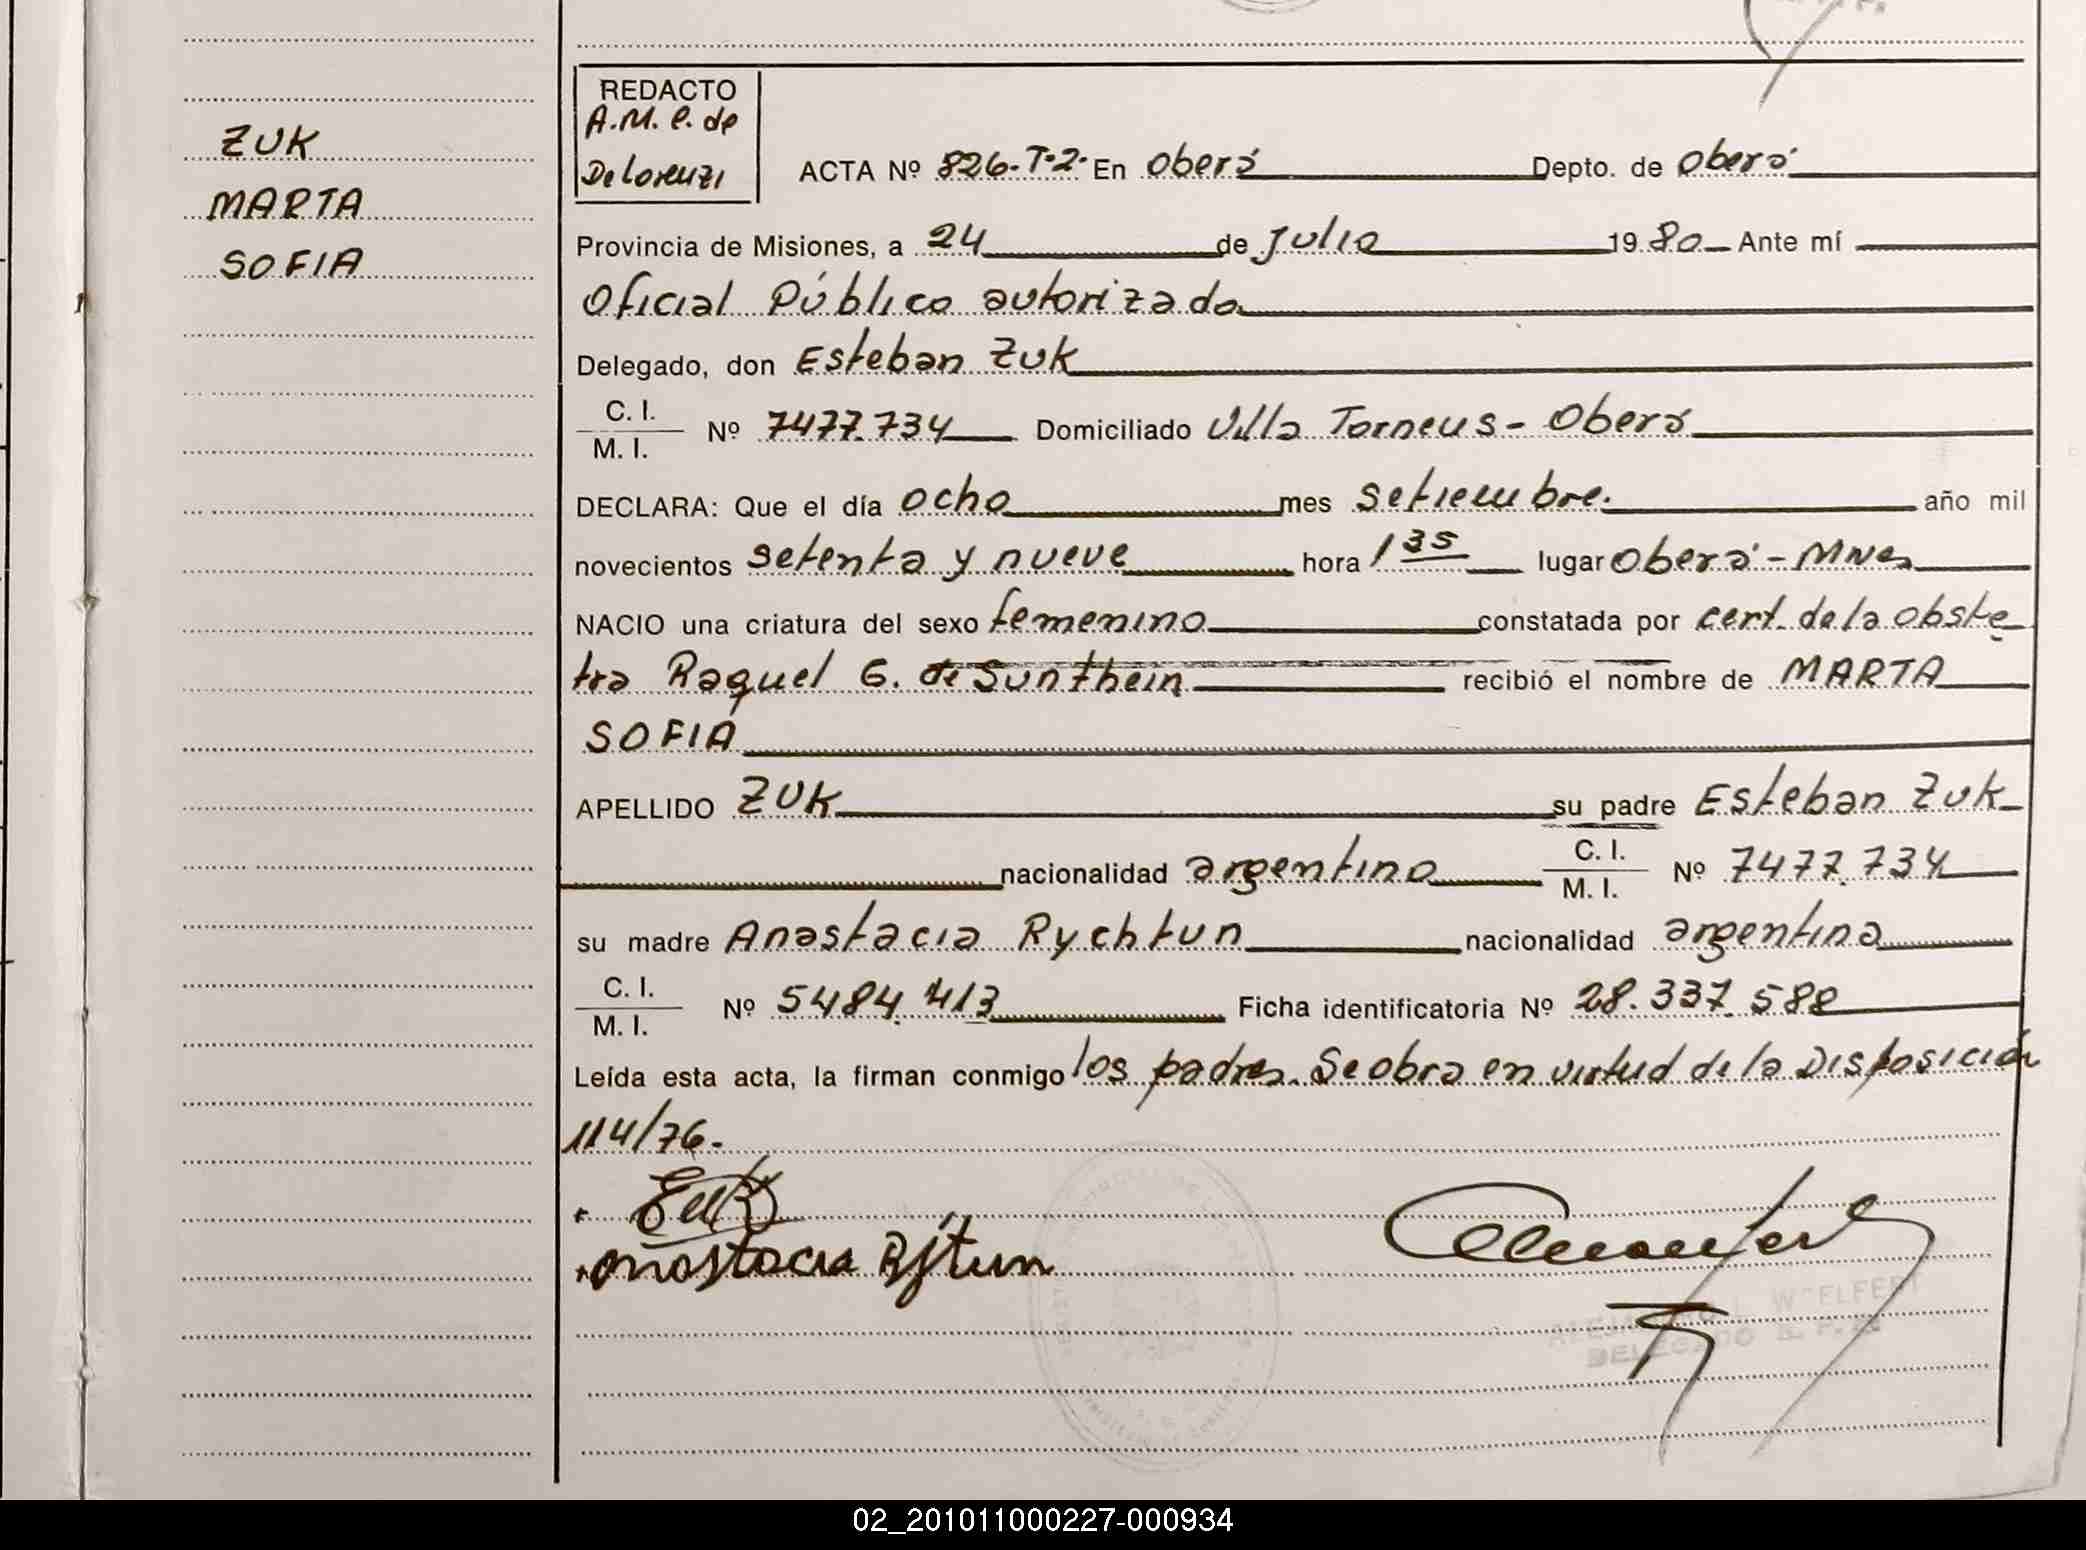 ZUK
MARTA
SOFIA
REDACTO
A.M.C. de
De Lorenzi
ACTA Nº 826.T.2. En Oberá Depto. de Oberá
Provincia de Misiones, a 24 de Julio 1980 Ante mí
Oficial Público autorizado
Delegado, don Esteban Zuk
C. I.
M. I.
Nº 7477.734 Domiciliado Villa Torneus - Oberá
DECLARA: Que el día ocho mes setiembre. año mil
novecientos setenta y nueve hora 1 35 lugar Oberá - Mnes
NACIO una criatura del sexo femenino constatada por cert. de la obste
tra Raquel G. de Sunthein recibió el nombre de MARTA
SOFIA
APELLIDO ZUK su padre Esteban Zuk
nacionalidad argentino C. I.
M. I.
Nº 7477.734
su madre Anastacia Rychtun nacionalidad argentina
C. I.
M. I.
Nº 5484.413 Ficha identificatoria Nº 28.337.588
Leída esta acta, la firman conmigo los padres. Se obra en virtud de la Disposición
114/76.
Anastacia Rjtun
WOELFERT
DELEGADO
02_201011000227-000934